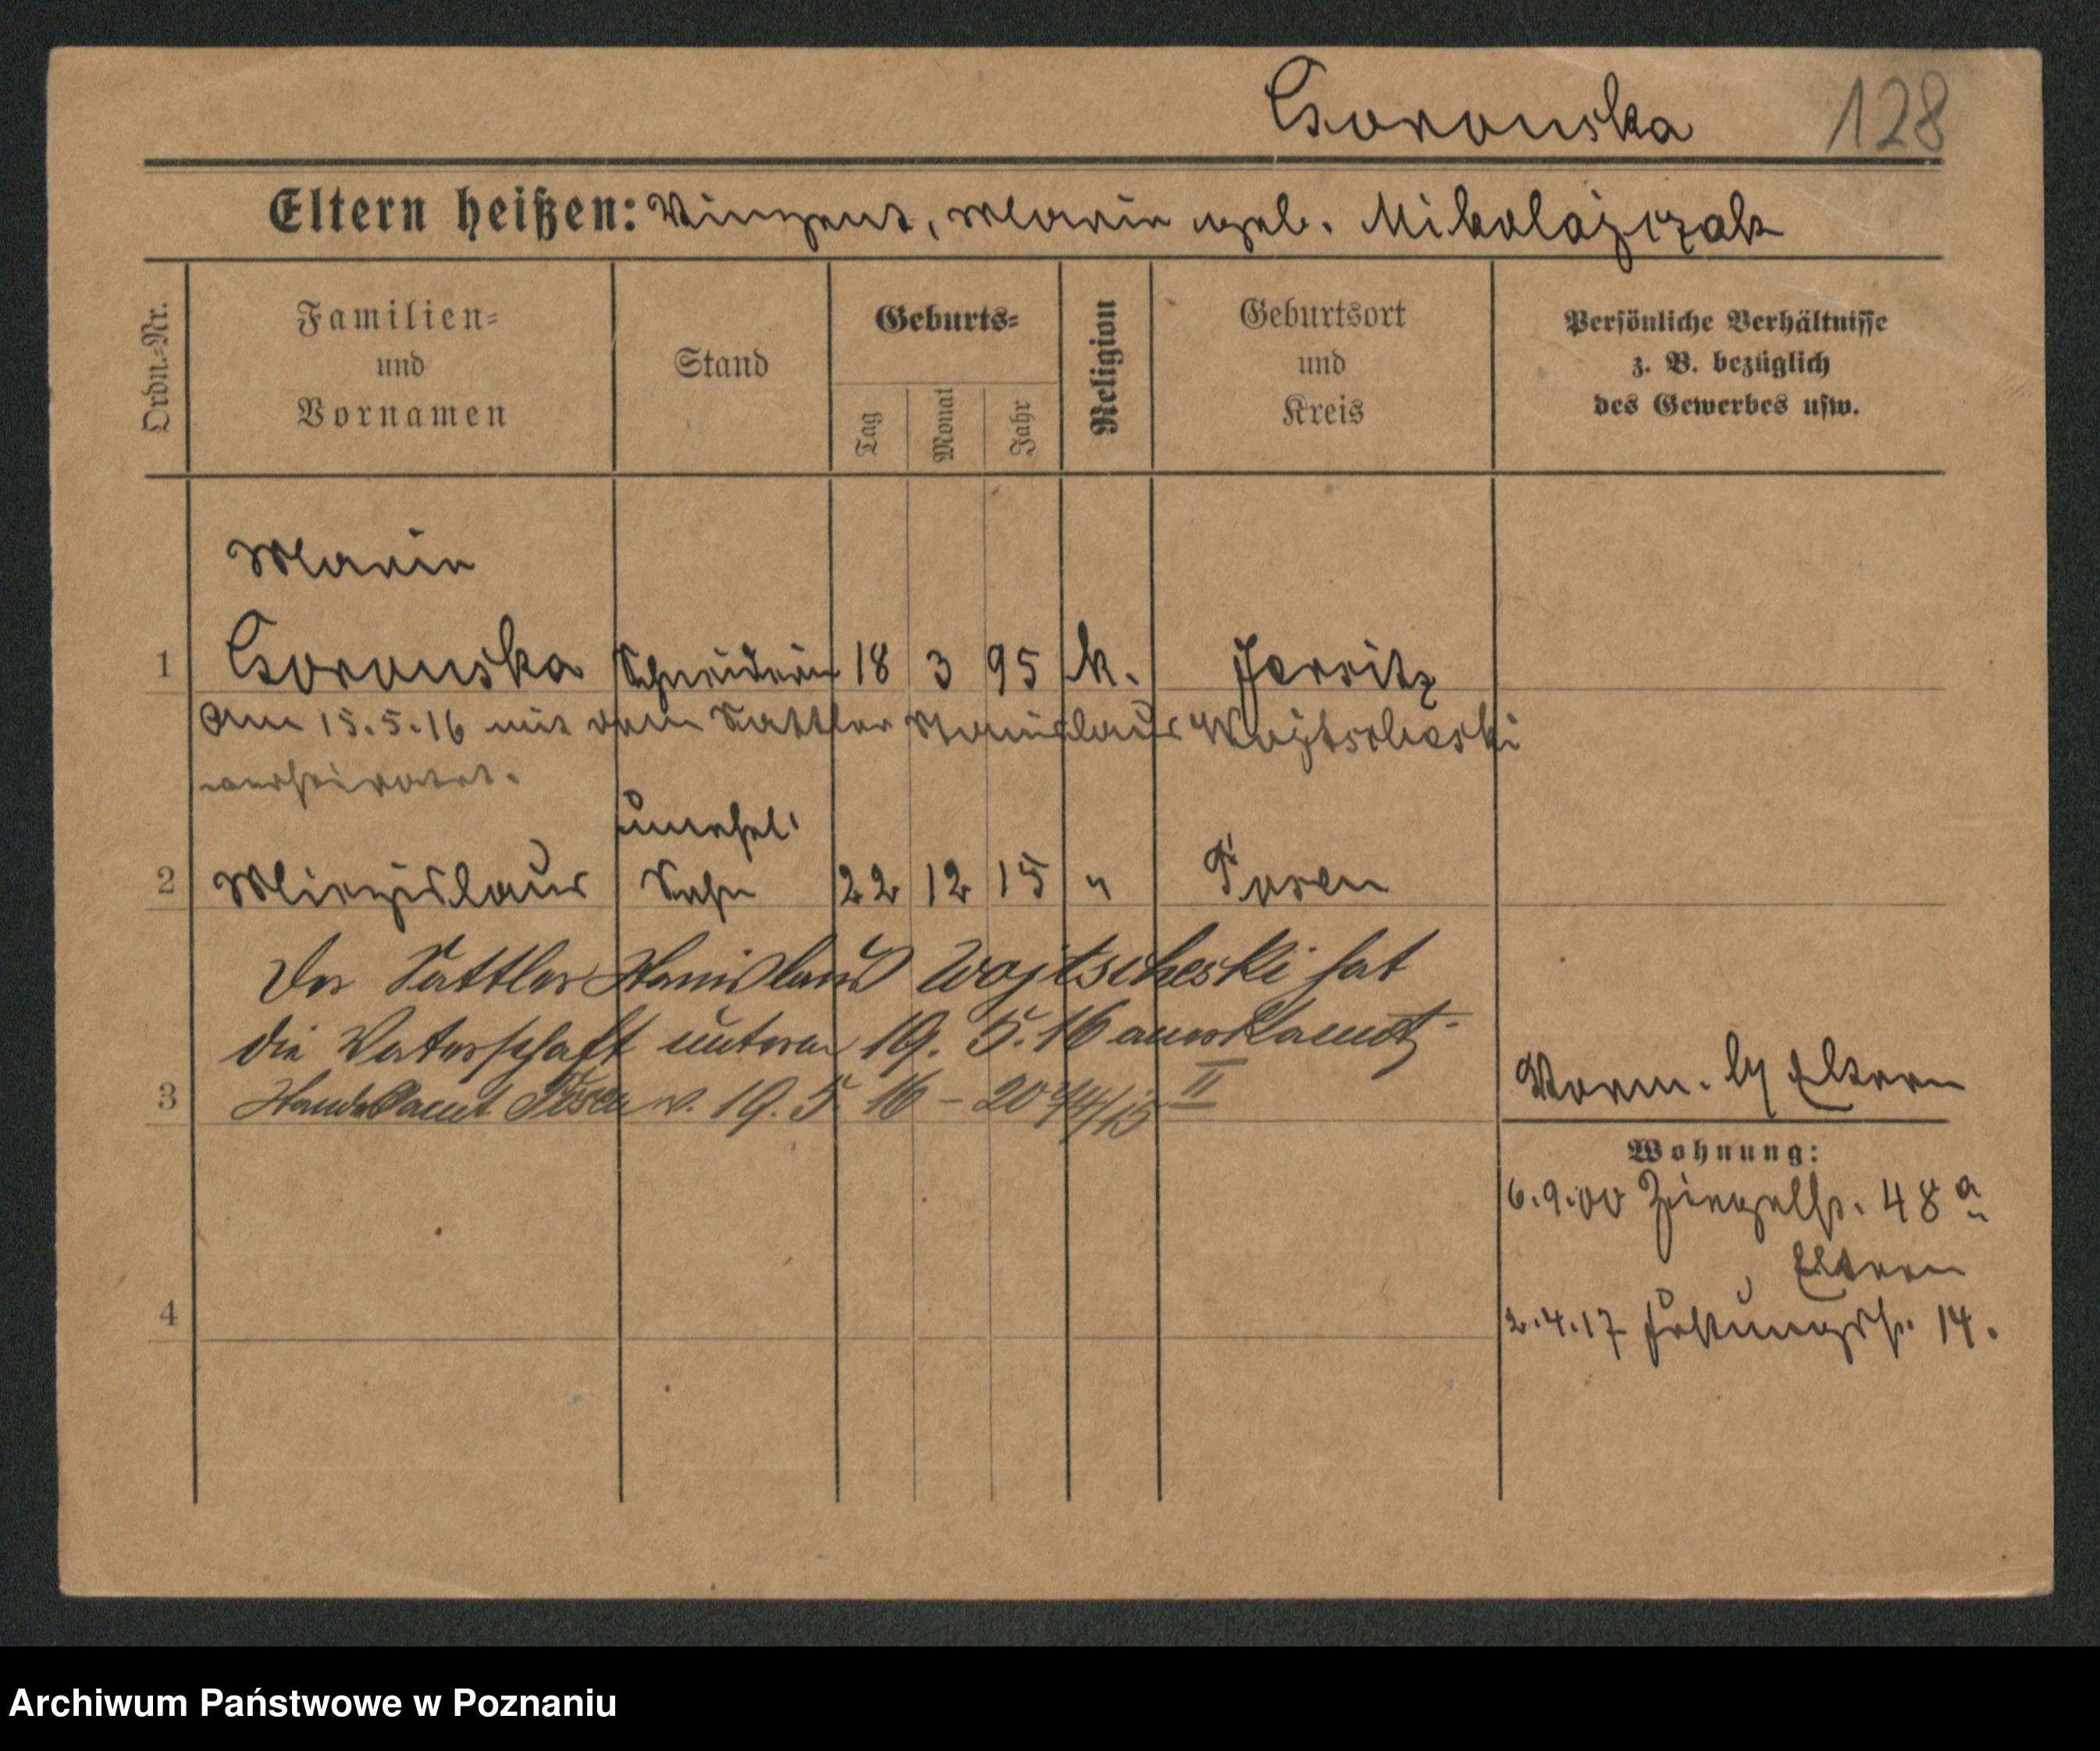 Goronska 128
Eltern heißen: Vinzent, Marie geb. Mikolajczak
Ordn.-Nr.
Familien-
und
Vornamen
Stand
Geburts-
Tag
Monat
Jahr
Religion
Geburtsort
und
Kreis
Persönliche Verhältnisse
z. B. bezüglich
des Gewerbes usw.
Marie
1 Goronska Schneiderin 18 3 95 k. Jersitz
Am 15.5.16 mit dem Sattler Stanislaus Wojtscheski
verheiratet.
unehel.
2 Miezislaus Sohn 22 12 15 " Posen
Der Sattler Stanislaus Wojtscheski hat
die Vaterschaft unterm 19. 5. 16 anerkannt
3 Standesamt Posen v. 19. 5. 16 – II
Vorm. b/ Eltern
Wohnung:
6.9.00 Ziegelstr. 48 a
Eltern
4
2.4.17 Festungsstr. 14.
Archiwum Państwowe w Poznaniu